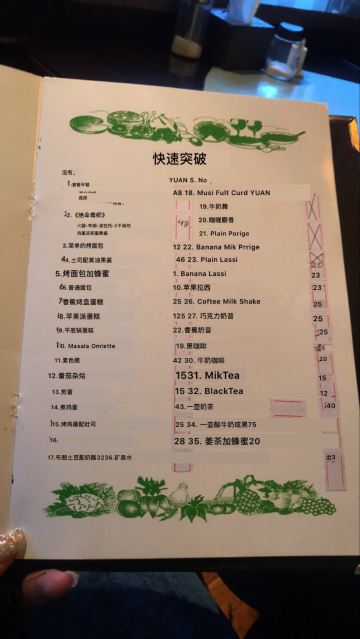 快速突破
没有。
YUAN S. No
1.套餐早餐
选择
A8 18. Musi Fult Curd YUAN
19.牛奶舞
2.《绝命毒师》
20.咖喱麝香
21. Plain Porige
3.简单的烤面包
12 22. Banana Mik Prrige
4.土司配黄油果酱
46 23. Plain Lassi
20
5.烤面包加蜂蜜
1. Banana Lassi
23
6.普通面包
10.苹果拉西
25
7香蕉烤盘蛋糕
25 26. Coftee Milk Shake
25
8.苹果派蛋糕
125 27. 巧克力奶昔
25
9.平底锅蛋糕
22.香蕉奶昔
25
10. Masala Omlette
19.黑咖啡
11.素色熊
42 30. 牛奶咖啡
20
12.番茄杂烩
1531. MikTea
15
13.煎蛋
15 32. BlackTea
12
14.煮鸡蛋
43.一壶奶茶
40
15.烤鸡蛋配吐司
25 34. 一壶酸牛奶或黑75
16.
28 35. 姜茶加蜂蜜20
17.布朗土豆配奶酪3236.矿泉水
出3